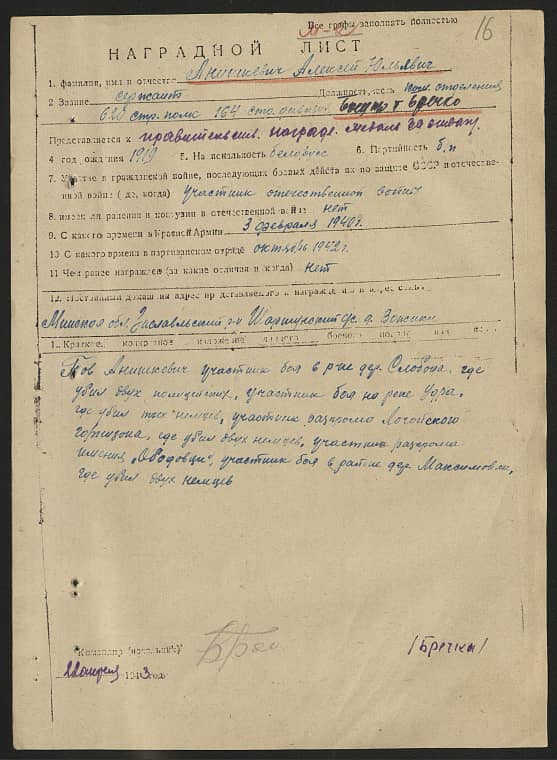 Все графы заполнать полностью
16
НАГРАДНОЙ ЛИСТ
1. фамилия, имя и отчество Анишкевич Алексей Юльявич
2 Звание сержант Должность, часть пом. отделения
620 стр. полк 164 стр. дивизии Бречко
Представляется к правительств. награде. медаль за отвагу
4 год рождения 1919 5. На иональность белорус 6. Партийность б/п
7. Участие в гражданской войне, последующих боевых действ ях по защите СССР и отечествен-
ной войне ( де, когда) участник отечественной войны
8. имеет ли ранения и кон узии в отечественной вой е нет
9. С какого времени в Красной Армии 3 февраля 1940 г.
10 С какого времени в партизанском отряде октябрь 1942 г.
11 Чем ранее награжден (за какие отличия и когда) нет
12. Постоянный домашний адрес
Минская обл. Заславльский р-н
1. Краткое, конкретное изложение боевого
Тов Анишкевич участник боя в р-не дер. Слобода, где
убил двух полицейских, участник боя на реке Удра,
где убил трех немцев, участник разгрома Логойского
гарнизона, где убил двух немцев, участник разгрома
имения „Ободовцы", участник боя в районе дер. Максимовка,
где убил двух немцев
Командир (начальник)
/Бречко/
апреля 1943 года